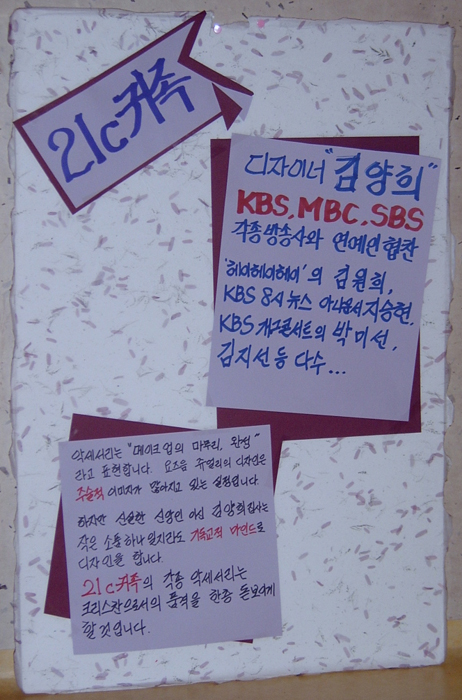 21c귀족
디자이너 "김양희"
KBS. MBC. SBS
각종 방송사와 연예인 협찬
'헤이헤이헤이'의 김원희,
KBS 8시 뉴스 아나운서 지승현,
KBS 개그콘서트의 박미선,
김지선 등 다수...
악세서리는 "메이크 업의 마무리, 완성"
라고 표현합니다. 요즈음 쥬얼리의 디자인은
주술적 이미지가 많아지고 있는 실정입니다
하지만 신실한 신앙인 이신 김양희집사는
작은 소품 하나 일지라도 기독교적 마인드로
디자인을 합니다.
21c귀족의 각종 악세서리는
크리스찬으로서의 품격을 한층 돋보이게
할 것입니다.